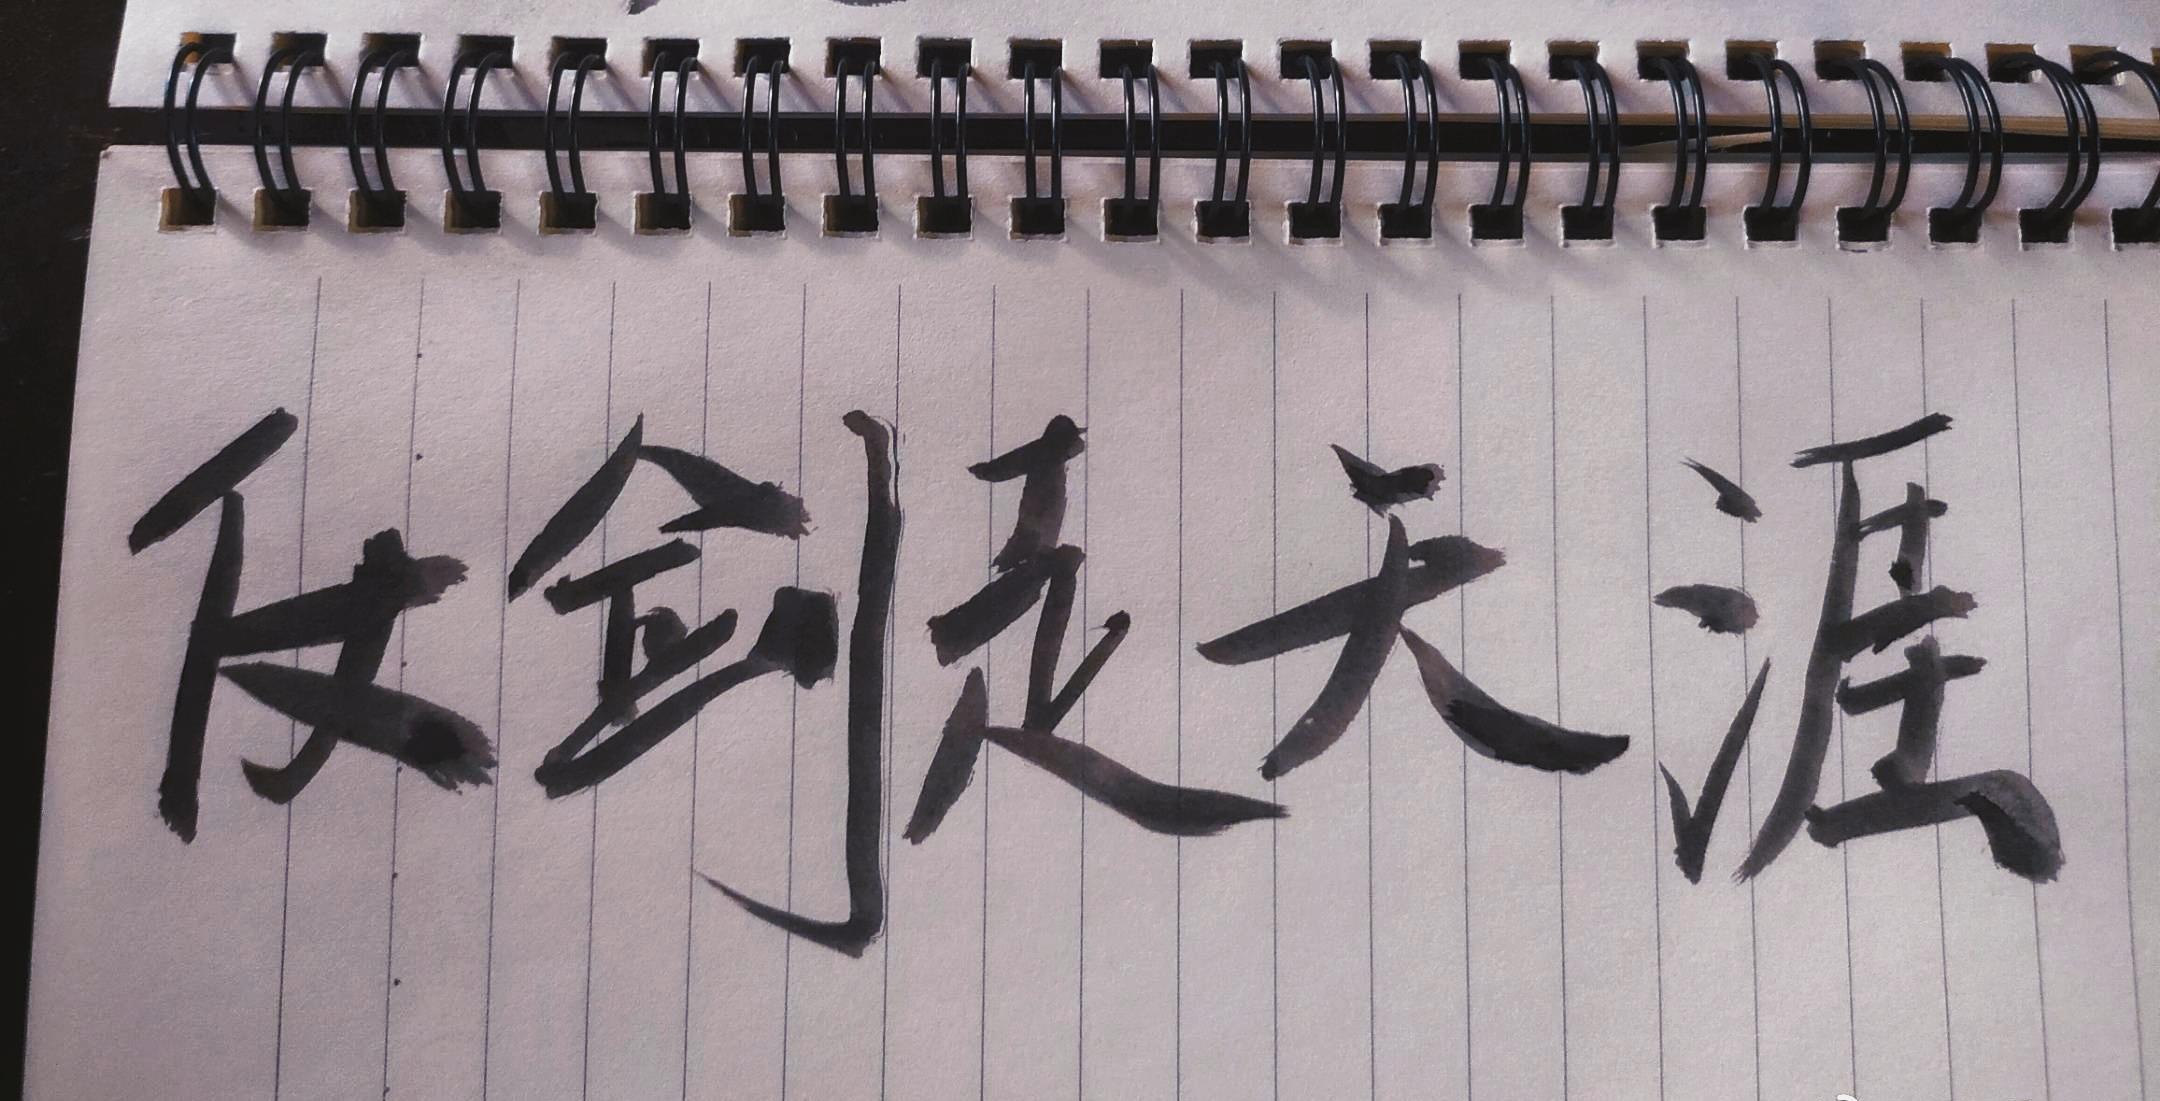 仗剑走天涯